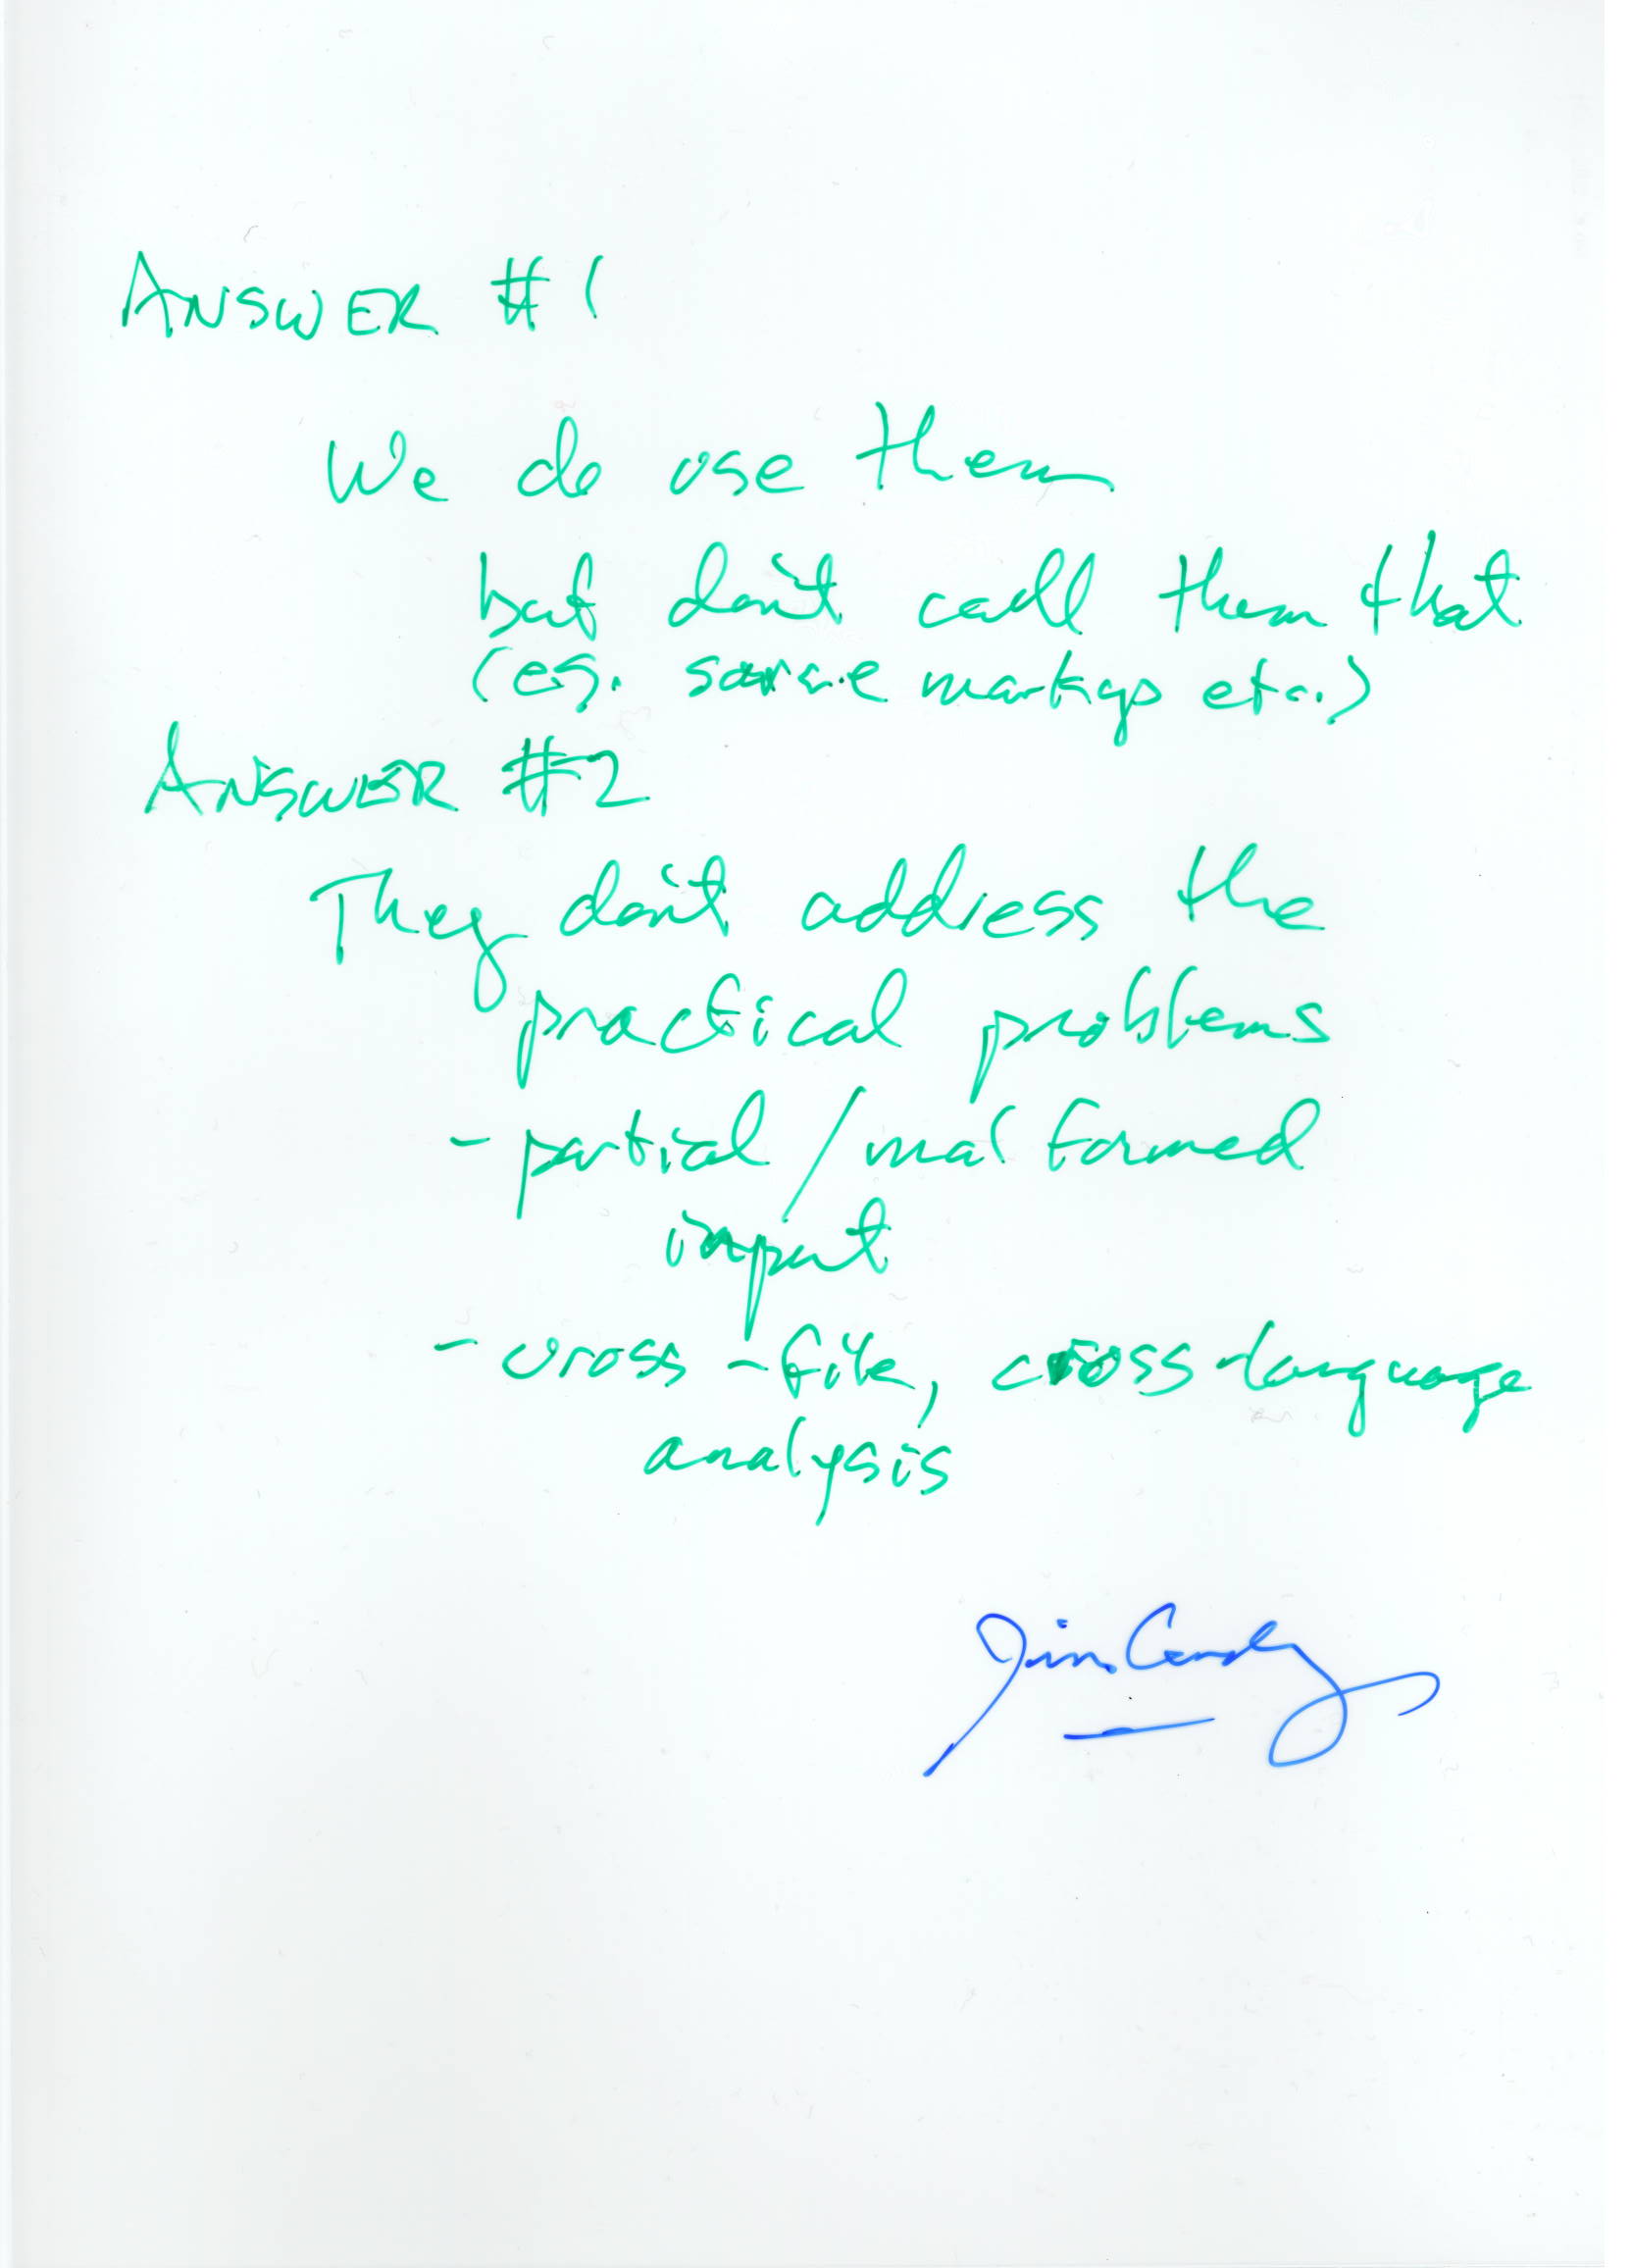 ANSWER #1
We do use them
but don't call them that
(eg. source markups etc.)
ANSWER #2
They don't address the
practical problems
- partial / malformed
input
- cross-file, cross-language
analysis
Jim Cordy